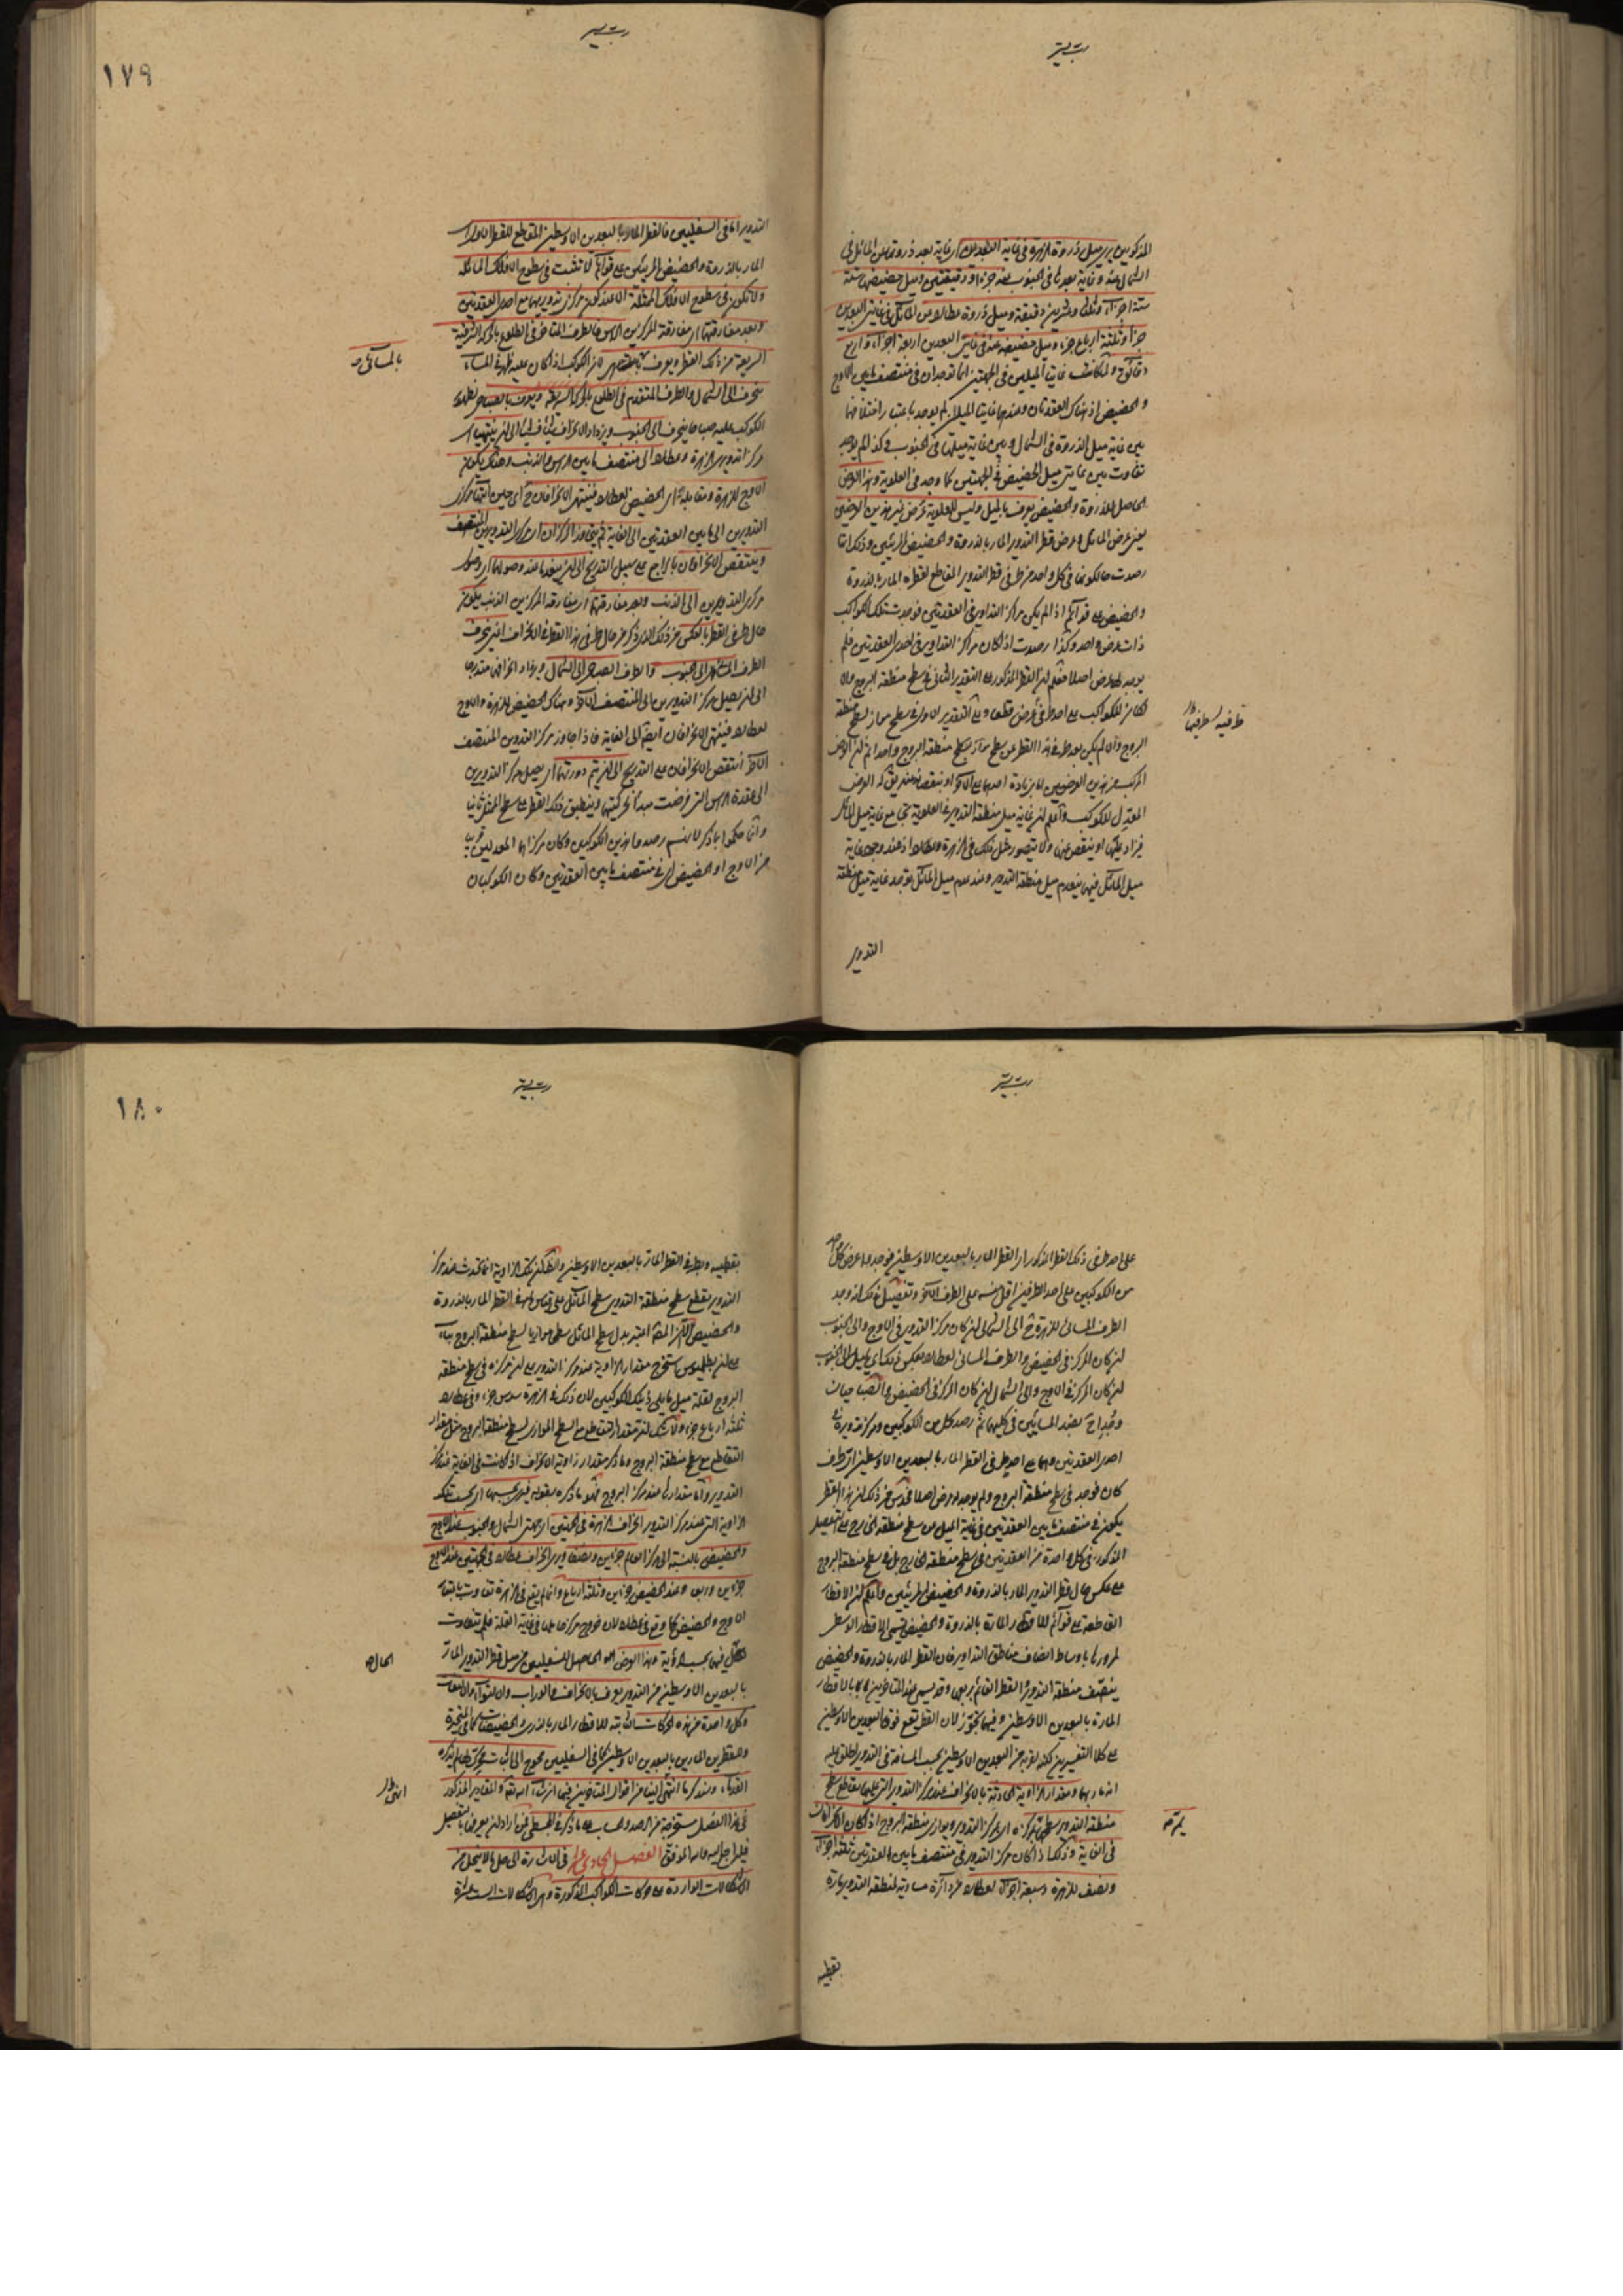 رب يسر
المذكورين يرى ميل ذروة الزهرة في غاية البعدين اى غاية بعد ذروتها عن المائل في
الشمال عنه وغاية بعدها في الجنوب عنه جزءا ودقيقتين وميل حضيضها ستة
ستة اجزاء وثلثا وعشرين دقيقة وميل ذروة عطارد عن المائل في غايتى البعدين
جزءا وثلثة ارباع جزء وميل حضيضه عنه في غايتى البعدين اربعة اجزاء واربع
دقائق ولما كانت غايتا الميلين في الجهتين انما توجدان في منتصف ما بين الاوج
والحضيض اذ هناك العقدتان وعندهما غايتا الميل لم يوجد باعتبار اختلافهما
بين غاية ميل الذروة في الشمال وبين غاية ميلها في الجنوب وكذا لم يوجد
تفاوت بين غايتى ميل الحضيض في الجهتين كما وجد في العلوية وهذا العرض
الحاصل للذروة والحضيض يعرف بالميل وليس للعلوية عرض غير هذين العرضين
يعنى عرض المائل وعرض قطر التدوير المار بالذروة والحضيض المرئيين وذلك لما
رصدت حالكونها في كل واحد من طرفى قطر التدوير المقاطع لقطره المار بالذروة
والحضيض على قوائم اذا لم يكن مراكز التداوير في العقدتين فوجدت تلك الكواكب
ذات عرض واحد وكذا رصدت اذا كان مراكز التداوير في احدى العقدتين فلم
يوجد لها عرض اصلا فعلم ان القطر المذكور على التقدير الثانى في سطح منطقة البروج والا
لكان للكواكب على احد طرفيه عرض قطعا وعلى التقدير الاول في سطح مواز لسطح منطقة
البروج والا لم يكن بعد طرفى هذا القطر عن سطح مواز لسطح منطقة البروج واحدا ثم ان العرض
المركب من هذين العرضين اما بزيادة احدهما على الآخر او بنقصانه منه يقال له العرض
المعدل للكواكب واعلم ان غاية ميل منطقة التدوير في العلوية تجامع غاية ميل المائل
فيزاد عليها او ينقص عنها ولا يتصور مثل ذلك في الزهرة وعطارد اذ عند وجود غاية
ميل المائل فيهما ينعدم ميل منطقة التدوير وعند عدم ميل المائل توجد غاية ميل منطقة
التدوير
رب يسر
١٧٩
التدوير اما في السفليين فالقطر المار بالبعدين الاوسطين المقاطع للقطر الاول اى
المار بالذروة والحضيض المرئيين على قوائم لا تثبت في سطوح الافلاك المائلة
ولا تكون في سطوح الافلاك الممثلة الا عند كون مركزى تدويريهما مع احدى العقدتين
وبعد مفارقتهما اى مفارقة المركزين الرأس فالطرف المتأخر في الطلوع بالحركة الشرقية
السريعة من ذلك القطر ويعرف لان الكوكب اذا كان عليه ظهر في المساء
بالمسائى صح
ينحرف الى الشمال والطرف المتقدم في الطلوع بالحركة السريعة ويعرف بالصباحى لظهور
الكوكب عليه صباحا ينحرف الى الجنوب ويزداد الانحراف شيئا فشيئا الى ان ينتهيا اى
مركزا تدويرى الزهرة وعطارد الى منتصف ما بين الرأس والذنب وهناك يكون
الاوج للزهرة ومقابله اى الحضيض لعطارد فينتهى الانحرافان ح اى حين انتهاء مركزى
التدويرين الى ما بين العقدتين الى الغاية ثم يتجاوز المركزان اى مركزا التدويرين المنتصف
وينتقص الانحرافان بالتراجع على سبيل التدريج الى ان ينعدما عند وصولهما اى وصول
مركزى التدويرين الى الذنب وبعد مفارقتهما اى مفارقة المركزين الذنب يكون
حال طرفى القطر بالعكس من ذلك الذى ذكر من حال طرفى هذا القطر في الانحراف اعنى ينحرف
الطرف المسائى الى الجنوب والطرف الصباحى الى الشمال ويزداد انحرافهما متدرجا
الى ان يصل مركزا التدويرين الى المنتصف الآخر وهناك الحضيض للزهرة والاوج
لعطارد فينتهى الانحرافان ايضا الى الغاية فاذا جاوز مركزا التدوير المنتصف
الآخر انتقص الانحرافان على التدريج الى ان يتم دورتهما اى يصل مركزا التدويرين
الى عقدة الرأس التى فرضت مبدأ حركتهما وينطبق ذلك القطر على سطح الممثل ثانيا
وانما حكموا بما ذكر لانهم رصدوا هذين الكوكبين وكان مركزاهما المعدلين قريبا
من الاوج او الحضيض اى في منتصف ما بين العقدتين وكان الكوكبان
رب يسر
على احد طرفى ذلك القطر المذكور اى القطر المار بالبعدين الاوسطين فوجدوا عرض كل واحد
من الكوكبين على احد الطرفين اقل منه على الطرف الآخر وتفصيل ذلك انه وجد
الطرف المسائى للزهرة ح الى الشمال ان كان مركز التدوير في الاوج والى الجنوب
ان كان المركز في الحضيض والطرف المسائى لعطارد بعكس ذلك اى يميل الى الجنوب
ان كان المركز في الاوج والى الشمال ان كان المركز في الحضيض والصباحيان
وجدا ح بضد المسائيين في كليهما ثم رصد كل من الكوكبين ومركز تدويره في
احدى العقدتين وهما على احد طرفى القطر المار بالبعدين الاوسطين اى طرف
كان فوجد في سطح منطقة البروج ولم يوجد له عرض اصلا فحدس من ذلك ان هذا القطر
يكون في منتصف ما بين العقدتين في غاية الميل عن سطح منطقة الخارج على التفصيل
المذكور وفي كل واحدة من العقدتين في سطح منطقة الخارج بل في سطح منطقة البروج
على عكس حال قطر التدوير المار بالذروة والحضيض المرئيين واعلم ان الاقطار
القاطعة على قوائم للاقطار المارة بالذروة والحضيض تسمى الاقطار الاوسط
لمرورها باوساط انصاف مناطق التداوير فان القطر المار بالذروة والحضيض
ينصف منطقة التدوير والقطر القائم يربعها وقد يسمى عند المتأخرين بالاقطار
المارة بالبعدين الاوسطين وفيهما تجوز لان القطر يقع فوق البعدين الاوسطين
على كلا التفسيرين لكنه لقربه من البعدين الاوسطين بحسب المسافة في التدوير اطلق عليه
انه مار بهما ومقدار الزاوية الحادثة بالانحراف عند مركز التدوير التى عليها يقاطع سطح
منطقة التدوير سطحا يمر بمركزه اى بمركز التدوير ويوازى منطقة البروج اذا كان الانحراف
يمر صح
في الغاية وذلك اذا كان مركز التدوير في منتصف ما بين العقدتين ثلثة اجزاء
ونصف للزهرة وسبعة اجزاء لعطارد من دائرة مساوية لمنطقة التدوير مارة
بقطبيه
رب يسر
١٨٠
بقطبيه وبطرفى القطر المار بالبعدين الاوسطين والظاهر ان تلك الزاوية انما تحدث عند مركز
التدوير بتقاطع سطح منطقة التدوير سطح المائل على قياس في القطر المار بالذروة
والحضيض الا ان المصنف اعتبر بدل سطح المائل سطحا موازيا لسطح منطقة البروج بناء
على ان بطليموس استخرج مقدار الزاوية عند مركز التدوير على ان مركزه في سطح منطقة
البروج لقلة ميل مائلى ذينك الكوكبين لان ذلك في الزهرة سدس جزء وفي عطارد
ثلثة ارباع جزء ولا شك ان مقدار تقاطع مع السطح الموازى لسطح منطقة البروج مثل مقدار
التقاطع مع سطح منطقة البروج وما ذكر مقدار زاوية الانحراف اذا كانت في الغاية عند مركز
التدوير واما مقدارها عند مركز البروج فهو ما ذكره بقوله فيرى بحسبها اى بحسب تلك
الزاوية التى عند مركز التدوير انحراف الزهرة في الجهتين اى جهتى الشمال والجنوب عند الاوج
والحضيض بالنسبة الى مركز العالم جزءين ونصفا ويرى انحراف عطارد في الجهتين عند الاوج
جزءين وربعا وعند الحضيض جزءين وثلثة ارباع وانما لم يقع في الزهرة تفاوت باعتبار
الاوج والحضيض كما وقع في عطارد لان خروج مركز حاملها في غاية القلة فلم يتفاوت
الحال فيها بحسب الرؤية وهذا العرض الحاصل للسفليين من ميل قطر التدوير المار
الحال صح
بالبعدين الاوسطين من التدوير يعرف بالانحراف والوراب والالتواء والالتفاف
وكل واحدة من هذه الحركات الثابتة للاقطار المارة بالذرى والحضيضات كما في المتحيرة
وللقطرين المارين بالبعدين الاوسطين كما في السفليين محوج الى اثبات محرك لها لم يذكره
القدماء وسنذكر ما انتهى الينا من اقوال المتأخرين فيها ان شاء الله تعالى والمقادير المذكورة
في هذا الفصل مستخرجة من الرصد والحساب على ما ذكر في المجسطى فمن اراد ان يعرفها بتفصيل
فليراجع اليه والله الموفق الفصل الحادى عشر في الاشارة الى حل ما لا ينحل من
الاشكالات الواردة على حركات الكواكب المذكورة وهى الاشكالات الستة عشر